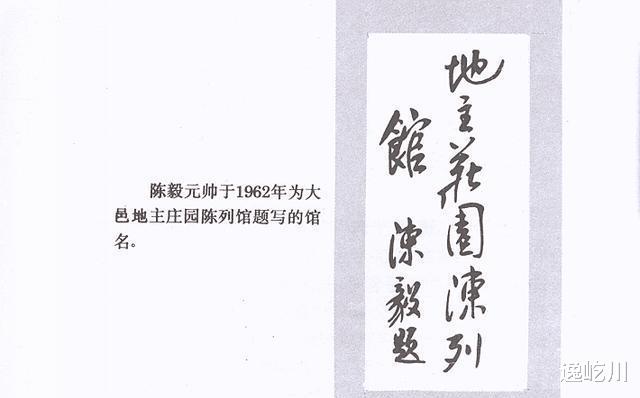 陈毅元帅于1962年为大
邑地主庄园陈列馆题写的馆
名。
地主莊園陳列
館 陳毅題
逸屹川